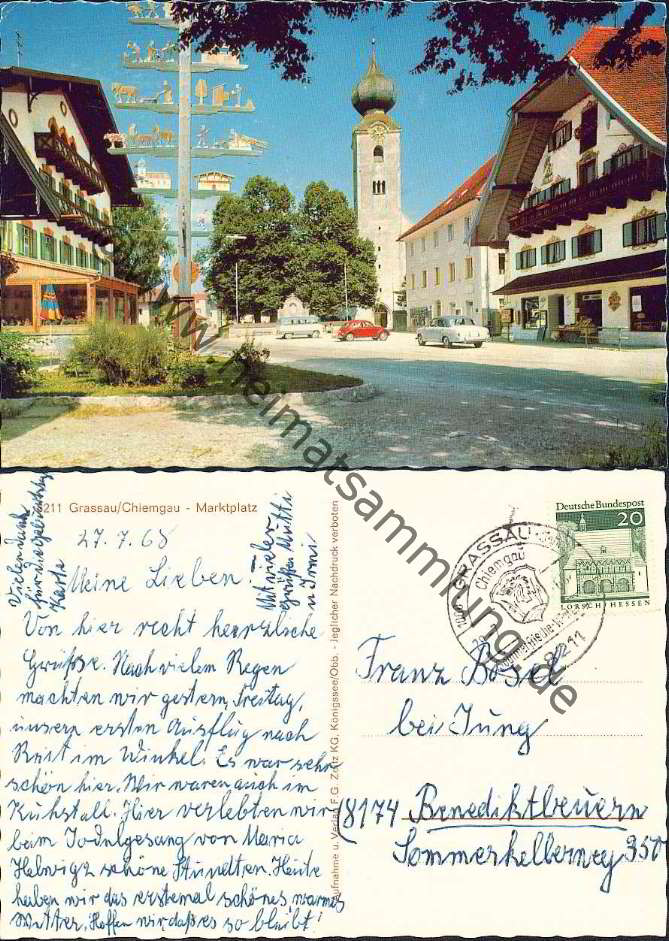 www.heimatsammlung.de
8211 Grassau/Chiemgau - Marktplatz
27.7.68
Vielen Dank
für die
Karte
Mit vielen
Grüßen Mutti
u Irmi
Meine Lieben!
Von hier recht herzlsche
Grüße. Nach vielem Regen
machten wir gestern, Freitag,
unsern ersten Ausflug nach
Ruit im Winkel. Es war sehr
schön hier. Wir waren auch im
Kuhstall. Hier verlebten wir
beim Jodulgesang von Maria
Helwigz schöne Stundten. Heute
haben wir das erstemal schönes warmes
Wetter. Hoffen wir daß es so bleibt!
Aufnahme u. Verlag F.G. Zeitz KG, Königssee/Obb. - Jeglicher Nachdruck verboten
GRASSAU
Chiemgau
8211
Deutsche Bundespost
20
LORSCH/HESSEN
Franz Bosel
bei Jung
(8174 Benediktbeuern
Sommerkellerweg 350